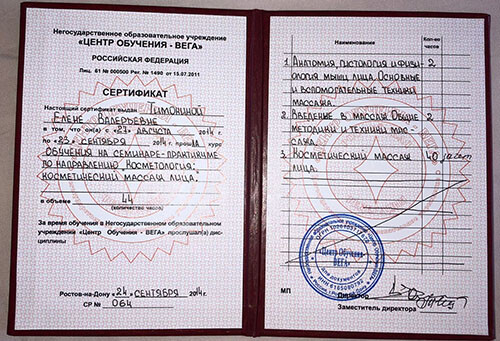 Негосударственное образовательное учреждение
«ЦЕНТР ОБУЧЕНИЯ - ВЕГА»
РОССИЙСКАЯ ФЕДЕРАЦИЯ
Лиц. 61 № 000500 Рег. № 1490 от 15.07.2011
СЕРТИФИКАТ
Настоящий сертификат выдан Тимониной
Елене Валерьевне
в том, что он(а) с «23» августа 2014 г.
по «23» сентября 2014 г. прошла курс
обучения на семинаре-практикуме
по направлению "Косметология:
косметический массаж лица."
в объеме 44
(количество часов)
За время обучения в Негосударственном образовательном
учреждении «Центр Обучения - ВЕГА» прослушал(а) дис-
циплины
Ростов-на-Дону «24» сентября 2014г.
СР № 064
Наименование
Кол-во
часов
1. Анатомия, гистология и физи- 2
ология мышц лица. Основные
и вспомогательные техники
массажа.
2. Введение в массаж. Общие 2
методики и техники мас-
сажа.
3. Косметический массаж 40 зачет
лица.
«Центр Обучения
ВЕГА»
Для документов
МП
Директор
Заместитель директора